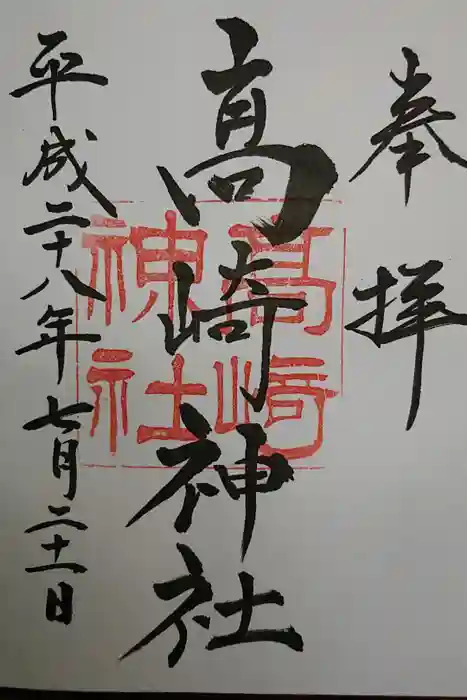 奉拝
高崎神社
高崎神社
平成二十八年七月二十一日